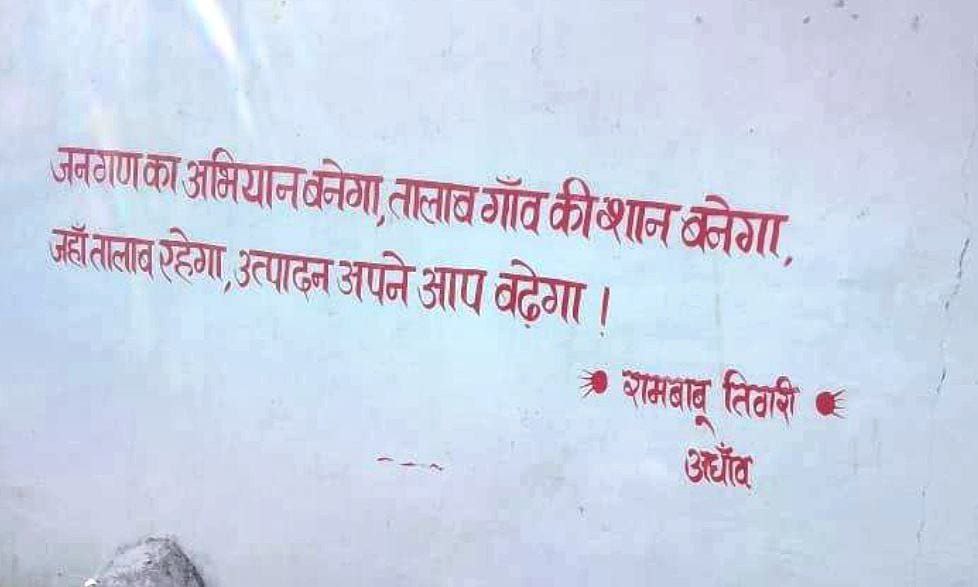 जनगण का अभियान बनेगा, तालाब गाँव की शान बनेगा,
जहाँ तालाब रहेगा, उत्पादन अपने आप बढ़ेगा !
रामबाबू तिवारी
अधाँव